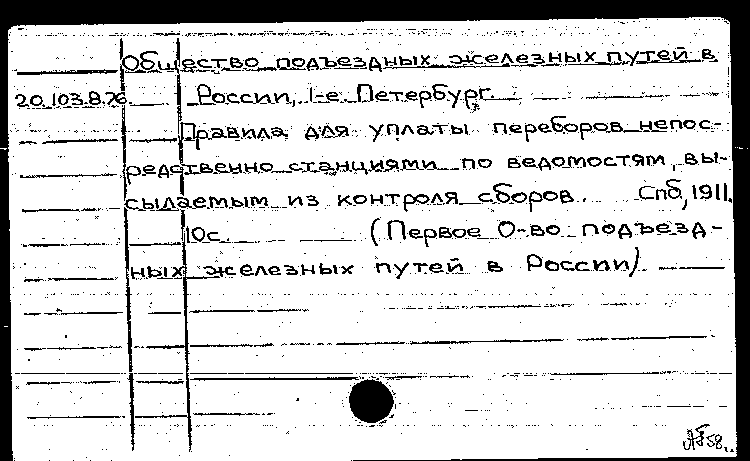 Общество подъездных железных путей в
20.103.8.76. России, 1-е. Петербург.
Правила для уплаты переборов непос-
редственно станциями по ведомостям, вы-
сылаемым из контроля сборов. Спб, 1911.
10с. (Первое О-во подъезд-
ных железных путей в России).
58